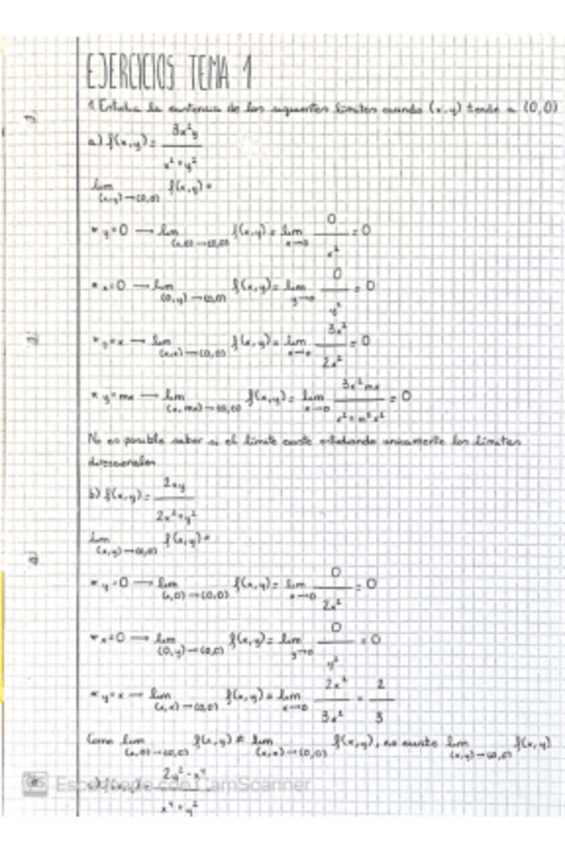 EJERCICIOS TEMA 1
1. Estudia la existencia de los siguientes límites cuando (x,y) tende a (0,0)
a) f(x,y) = 3x²y / x²+y²
lim (x,y)→(0,0) f(x,y) =
* y=0 → lim (x,0)→(0,0) f(x,y) = lim x→0 0 / x² = 0
* x=0 → lim (0,y)→(0,0) f(x,y) = lim y→0 0 / y² = 0
* y=x → lim (x,x)→(0,0) f(x,y) = lim x→0 3x³ / 2x² = 0
* y=mx → lim (x,mx)→(0,0) f(x,y) = lim x→0 3x²mx / x²+m²x² = 0
No es posible saber si el límite existe estudiando unicamente los límites
direccionales
b) f(x,y) = 2xy / 2x²+y²
lim (x,y)→(0,0) f(x,y) =
* y=0 → lim (x,0)→(0,0) f(x,y) = lim x→0 0 / 2x² = 0
* x=0 → lim (0,y)→(0,0) f(x,y) = lim y→0 0 / y² = 0
* y=x → lim (x,x)→(0,0) f(x,y) = lim x→0 2x² / 3x² = 2 / 3
Como lim (x,0)→(0,0) f(x,y) ≠ lim (x,x)→(0,0) f(x,y), no existe lim (x,y)→(0,0) f(x,y)
2y²-x⁴ / x⁴+y²
CS Escaneado con CamScanner